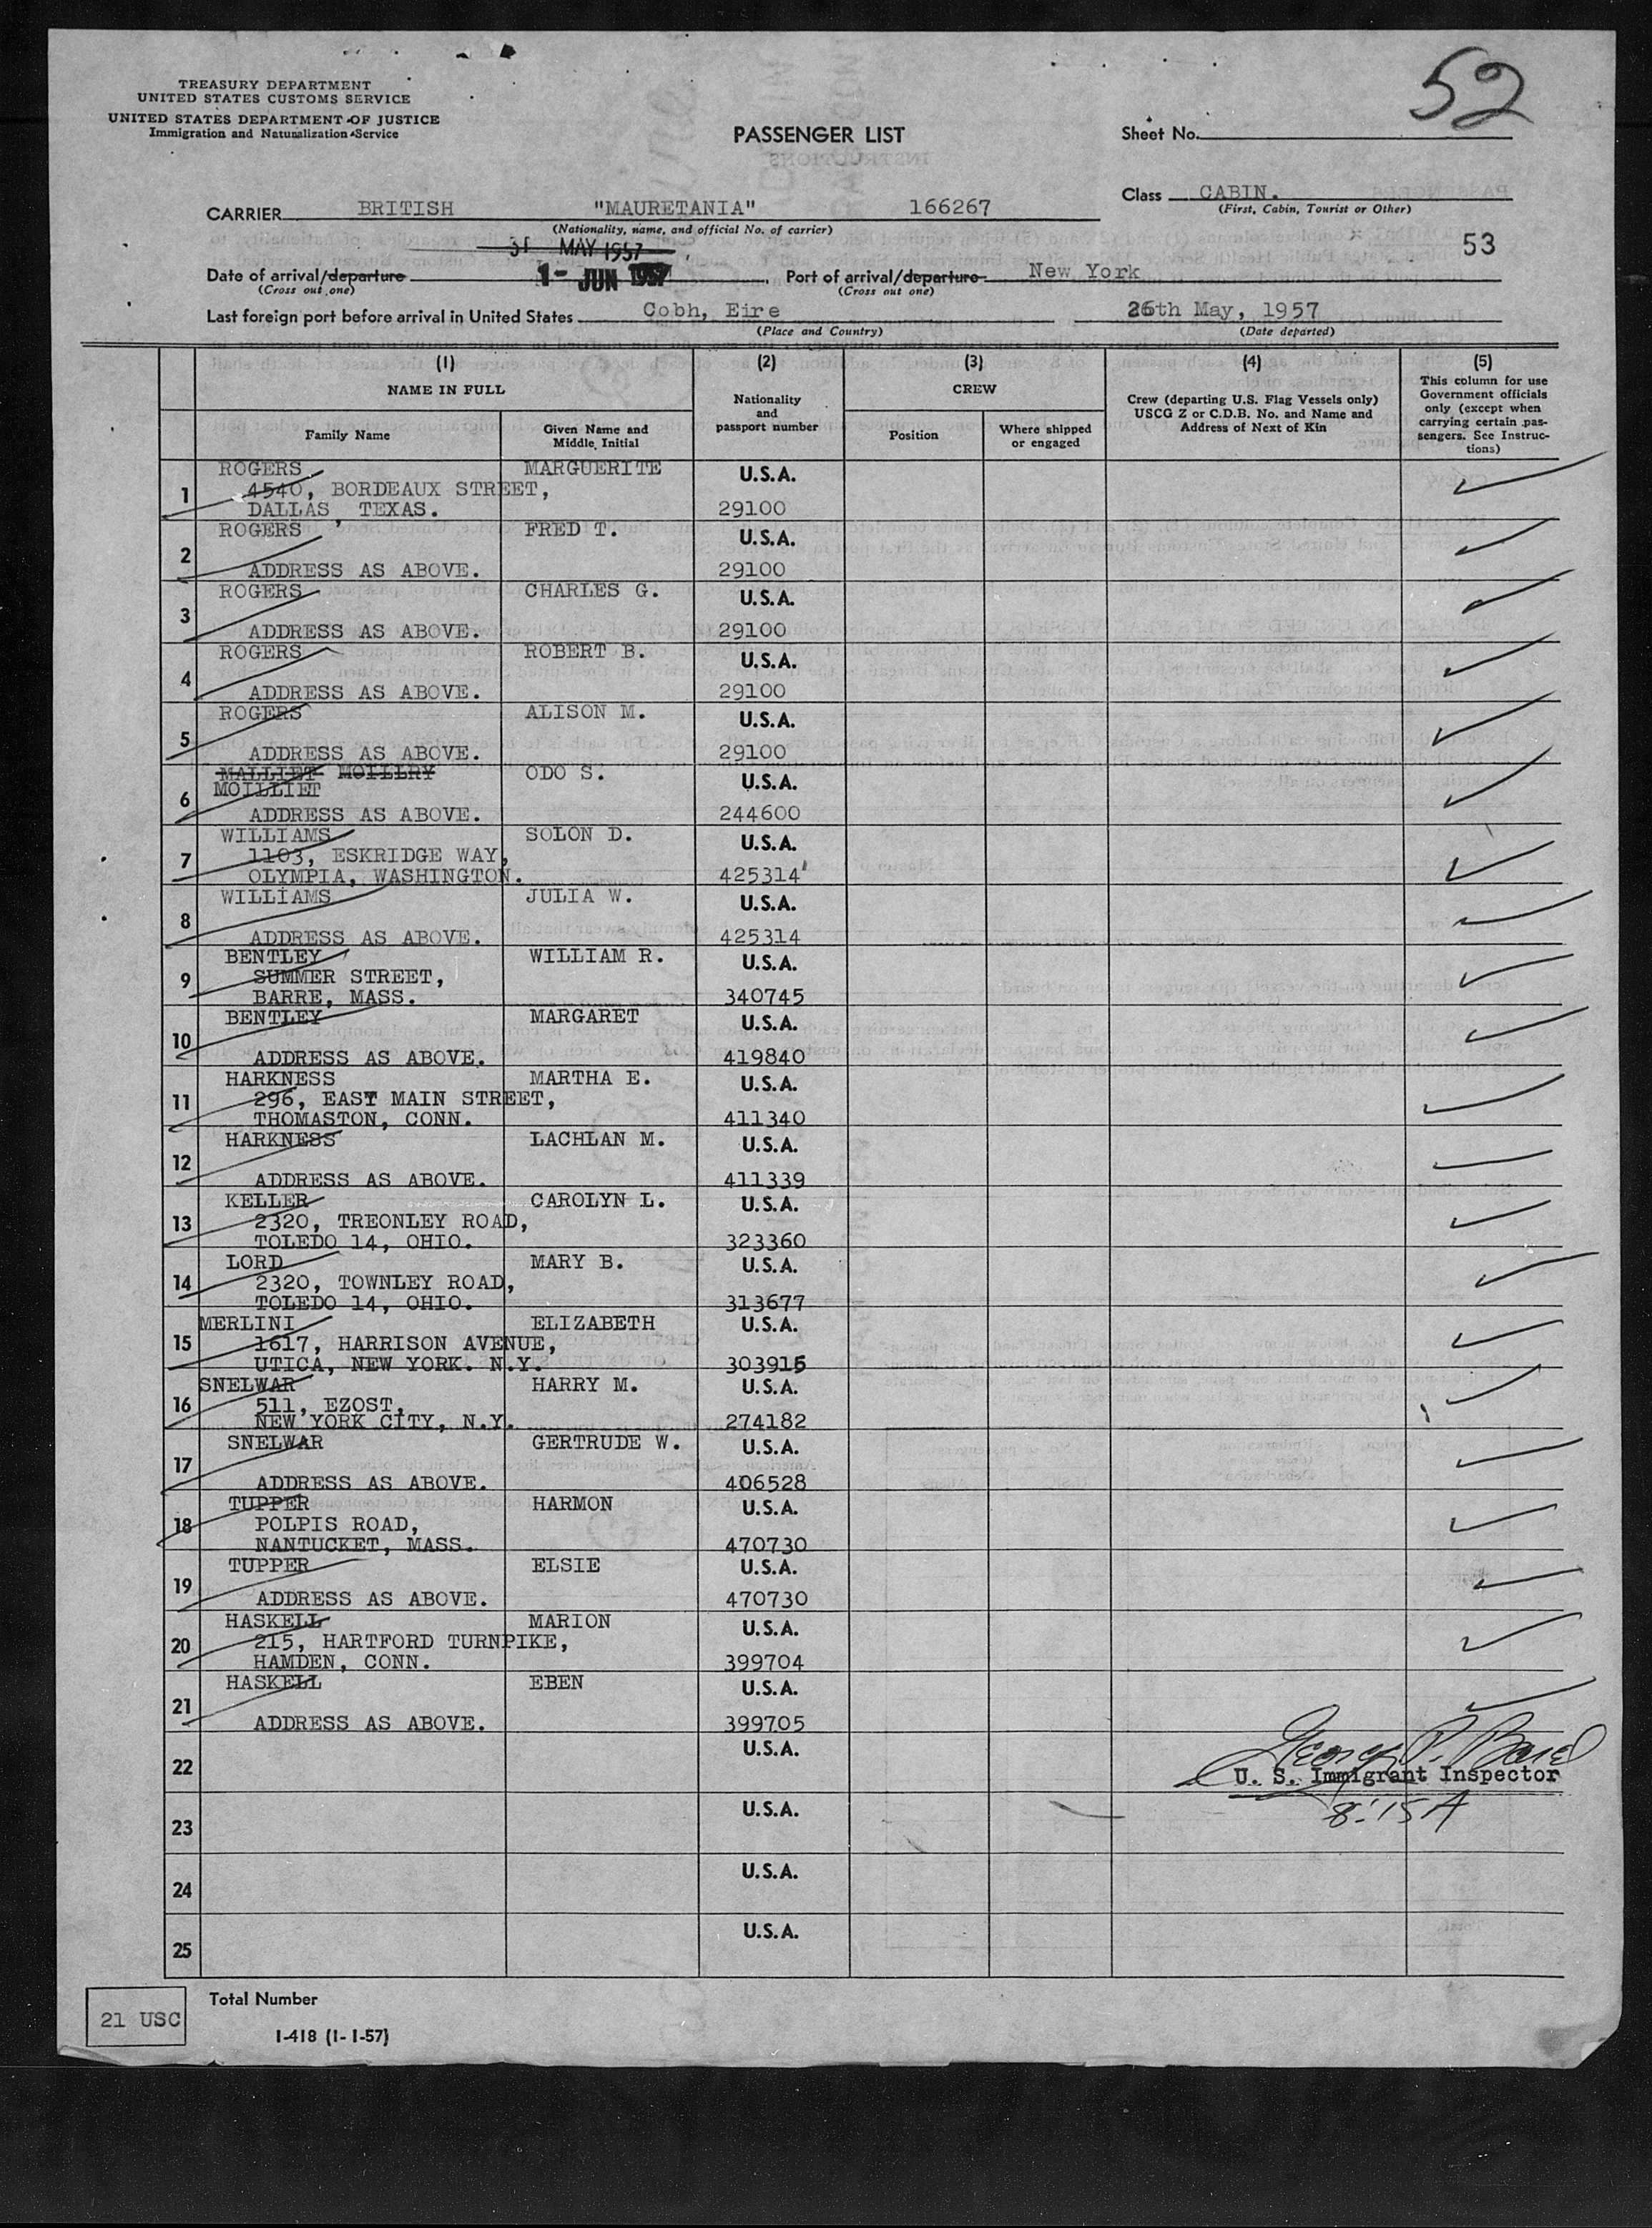 TREASURY DEPARTMENT
UNITED STATES CUSTOMS SERVICE
UNITED STATES DEPARTMENT OF JUSTICE
Immigration and Naturalization Service
PASSENGER LIST
Sheet No. 52
Class CABIN.
(First, Cabin, Tourist or Other)
CARRIER BRITISH "MAURETANIA" 166267
(Nationality, name, and official No. of carrier)
53
31 MAY 1957
Date of arrival/departure 1- JUN 1957 Port of arrival/departure New York
(Cross out one) (Cross out one)
Last foreign port before arrival in United States Cobh, Eire 26th May, 1957
(Place and Country) (Date departed)
(1) (2) (3) (4) (5)
NAME IN FULL
Nationality and passport number
CREW
Crew (departing U.S. Flag Vessels only)
USCG Z or C.D.B. No. and Name and
Address of Next of Kin
This column for use
Government officials
only (except when
carrying certain pas-
sengers. See Instruc-
tions)
Family Name
Given Name and
Middle Initial
Position
Where shipped
or engaged
1 ROGERS MARGUERITE U.S.A.
4540, BORDEAUX STREET,
DALLAS, TEXAS. 29100
2 ROGERS FRED T. U.S.A.
ADDRESS AS ABOVE. 29100
3 ROGERS CHARLES G. U.S.A.
ADDRESS AS ABOVE. 29100
4 ROGERS ROBERT B. U.S.A.
ADDRESS AS ABOVE. 29100
5 ROGERS ALISON M. U.S.A.
ADDRESS AS ABOVE. 29100
6 MALLIET MOILLRY ODO S. U.S.A.
MOILLIET
ADDRESS AS ABOVE. 244600
7 WILLIAMS SOLON D. U.S.A.
1103, ESKRIDGE WAY,
OLYMPIA, WASHINGTON. 425314
8 WILLIAMS JULIA W. U.S.A.
ADDRESS AS ABOVE. 425314
9 BENTLEY WILLIAM R. U.S.A.
SUMMER STREET,
BARRE, MASS. 340745
10 BENTLEY MARGARET U.S.A.
ADDRESS AS ABOVE. 419840
11 HARKNESS MARTHA E. U.S.A.
296, EAST MAIN STREET,
THOMASTON, CONN. 411340
12 HARKNESS LACHLAN M. U.S.A.
ADDRESS AS ABOVE. 411339
13 KELLER CAROLYN L. U.S.A.
2320, TREONLEY ROAD,
TOLEDO 14, OHIO. 323360
14 LORD MARY B. U.S.A.
2320, TOWNLEY ROAD,
TOLEDO 14, OHIO. 313677
15 MERLINI ELIZABETH U.S.A.
1617, HARRISON AVENUE,
UTICA, NEW YORK. N.Y. 303915
16 SNELWAR HARRY M. U.S.A.
511, EZOST,
NEW YORK CITY, N.Y. 274182
17 SNELWAR GERTRUDE W. U.S.A.
ADDRESS AS ABOVE. 406528
18 TUPPER HARMON U.S.A.
POLPIS ROAD,
NANTUCKET, MASS. 470730
19 TUPPER ELSIE U.S.A.
ADDRESS AS ABOVE. 470730
20 HASKELL MARION U.S.A.
215, HARTFORD TURNPIKE,
HAMDEN, CONN. 399704
21 HASKELL EBEN U.S.A.
ADDRESS AS ABOVE. 399705
22 U.S.A.
George P.
U. S. Immigrant Inspector
8:15 A
23 U.S.A.
24 U.S.A.
25 U.S.A.
21 USC
Total Number
I-418 (1-1-57)